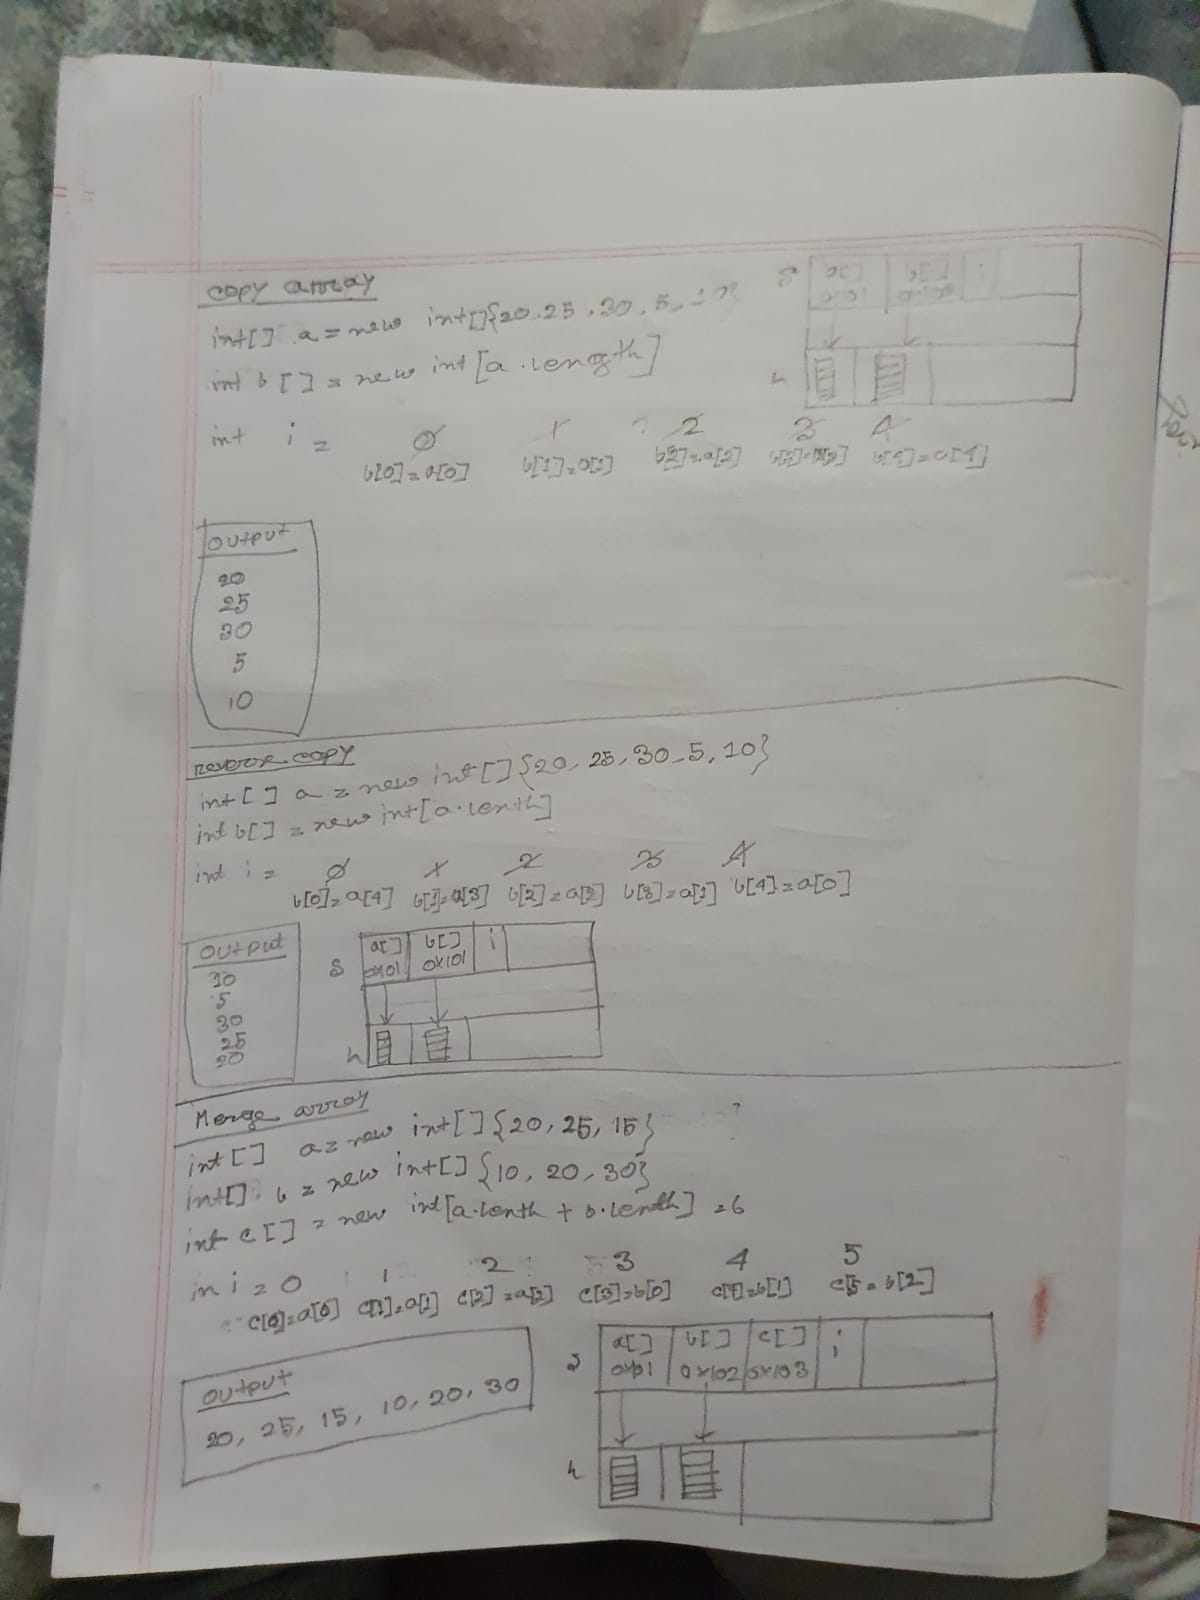 copy array
int[] a = new int[]{20, 25, 30, 5, 10}
int b[] = new int[a.length]
int i = 0 1 2 3 4
b[0]=a[0] b[1]=a[1] b[2]=a[2] b[3]=a[3] b[4]=a[4]
s a[] b[] i
h
output
20
25
30
5
10
reverse copy
int[] a = new int[]{20, 25, 30, 5, 10}
int b[] = new int[a.lenth]
int i = 0 1 2 3 4
b[0]=a[4] b[1]=a[3] b[2]=a[2] b[3]=a[1] b[4]=a[0]
output
10
5
30
25
20
s a[] b[] i
0x01 0x101
h
Merge array
int[] a = new int[]{20, 25, 15}
int[] b = new int[]{10, 20, 30}
int c[] = new int[a.lenth + b.lenth] = 6
in i = 0 1 2 3 4 5
c[0]=a[0] c[1]=a[1] c[2]=a[2] c[3]=b[0] c[4]=b[1] c[5=b[2]
output
20, 25, 15, 10, 20, 30
s a[] b[] c[] i
0x102 0x103
h